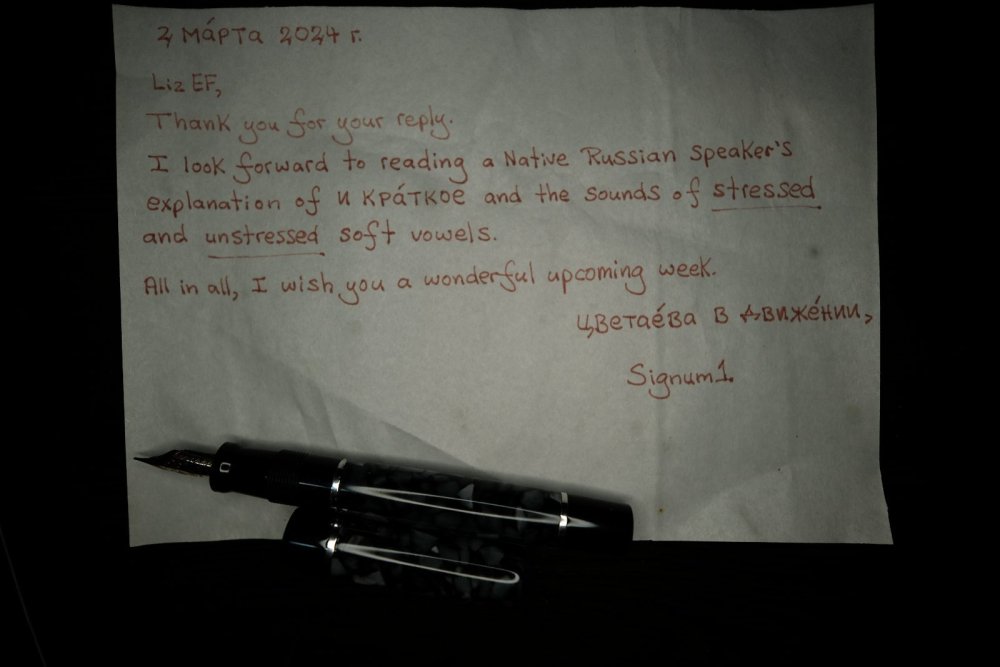 2 МА́РТА 2024 г.
Liz EF,
Thank you for your reply.
I look forward to reading a Native Russian speaker's
explanation of и КРА́ТКОЕ and the sounds of stressed
and unstressed soft vowels.
All in all, I wish you a wonderful upcoming week.
Цветае́ва в движе́нии,
Signum1.